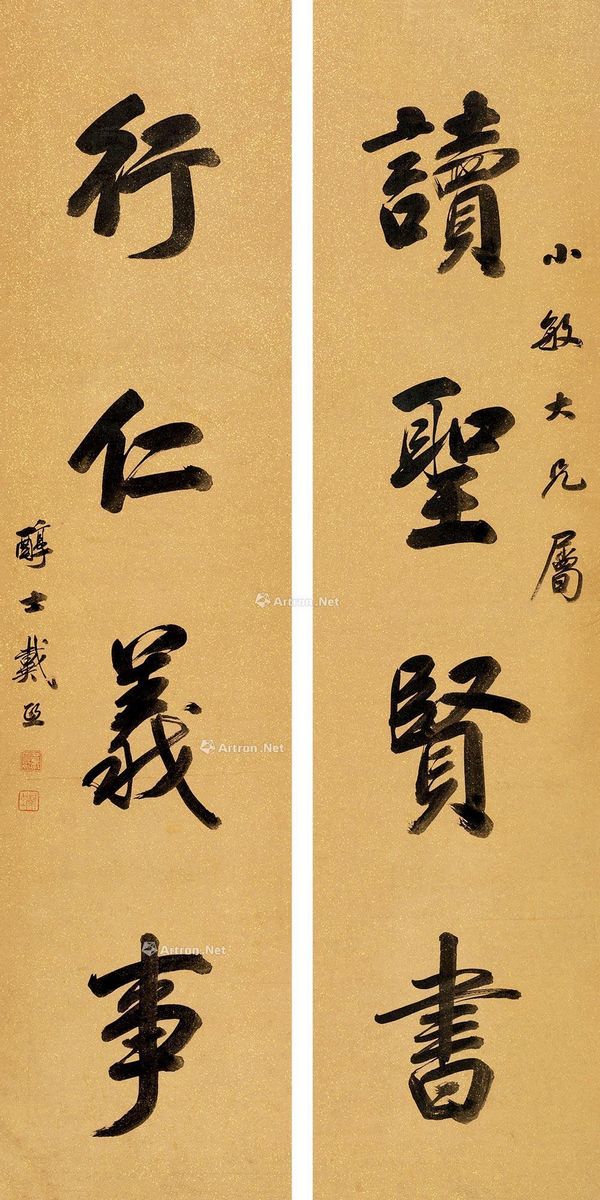 小敏大兄屬
讀聖賢書
行仁義事
醇士戴熙
Artron.Net
Artron.Net
Artron.Net